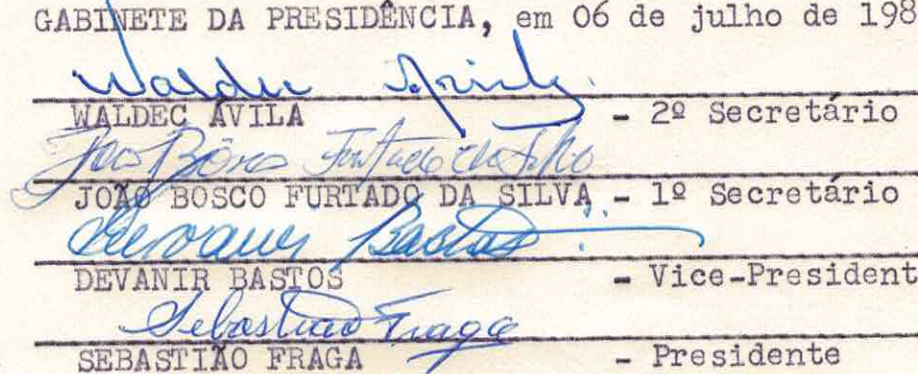 GABINETE DA PRESIDÊNCIA, em 06 de julho de 198
Waldec Ávila
WALDEC ÁVILA - 2º Secretário
João Bosco Furtado da Silva
JOÃO BOSCO FURTADO DA SILVA - 1º Secretário
Devanir Bastos
DEVANIR BASTOS - Vice-President
Sebastião Fraga
SEBASTIÃO FRAGA - Presidente